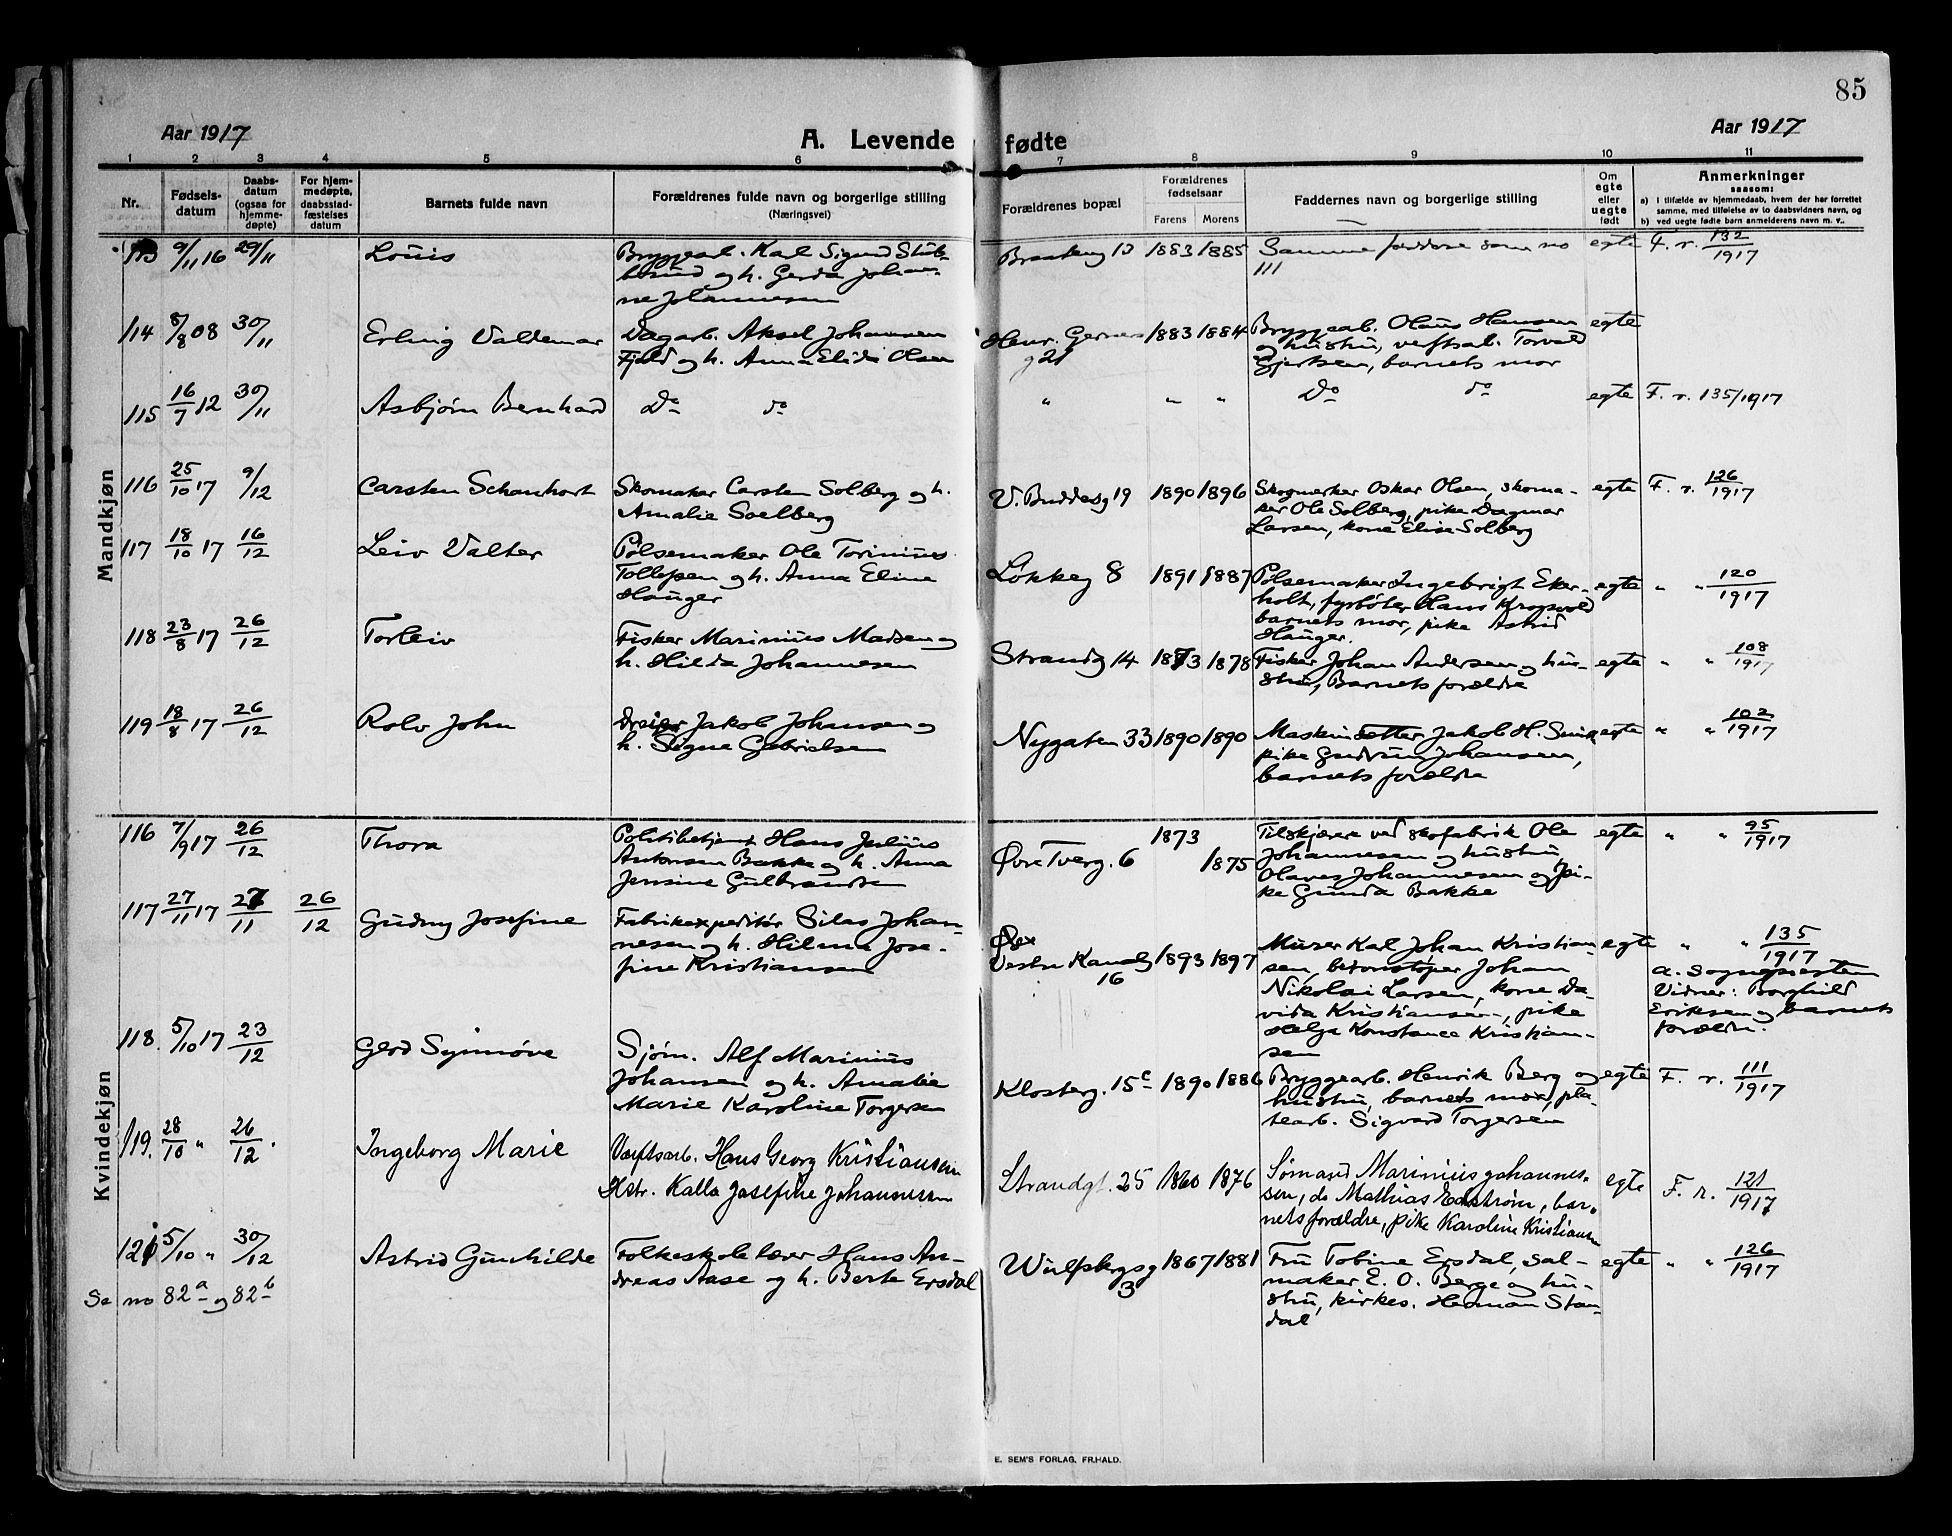 85
Aar 1917
A. Levende fødte
Aar 1917
1 2 3 4 5 6 7 8 9 10 11
Nr.
Fødsels-
datum
Daabs-
datum
(ogsaa for
hjemme-
døpte)
For hjem-
medøpte,
daabsstad-
fæstelses
datum
Barnets fulde navn
Forældrenes fulde navn og borgerlige stilling
(Næringsvei)
Forældrenes bopæl
Forældrenes
fødselsaar
Farens Morens
Faddernes navn og borgerlige stilling
Om
egte
eller
uegte
født
Anmerkninger
saasom:
a) i tilfælde av hjemmedaab, hvem der har forrettet
samme, med tilføielse av to daabsvidners navn, og
b) ved uegte fødte barn anmelderens navn m. v..
Mandkjøn
113 9/11 16 29/11 Louis
Bryggearb. Karl Sigurd
og h. Gerda Johan-
ne Johannesen
1883 1885
Samme faddere som no
111
egte F. r. 132/1917
114 8/8 08 30/11 Erling Valdemar
Dagarb. Aksel Johannesen
Fjeld og h. Anna Elida Olsen
Henr. Gerners
g 21
1883 1884
Bryggearb. Olaus Hansen
og hustru, verftsarb. Torvald
Gjertsen, barnets mor
egte
115 16/7 12 30/11 Asbjørn Bernhard
Do do
" " "
Do do
egte F. r. 135/1917
116 25/10 17 9/12 Carsten Schanhort
Skomaker Carsten Solberg og h.
Amalie Soelberg
V. Buddesg 19 1890 1896
Skogmerker Oskar Olsen, skoma-
ker Ole Solberg, pike Dagmar
Larsen, kone Elise Solberg
egte F. r. 126/1917
117 18/10 17 16/12 Leiv Valter
Pølsemaker Ole Torinius
Tollefsen og h. Anna Eline
Hauger
Løkkeg 8 1891 1887
Pølsemaker Ingebrigt Eker-
holt, fyrbøter Hans
barnets mor, pike Astrid
Hauger.
egte " " 120/1917
118 23/8 17 26/12 Torleiv
Fisker Marinius Madsen og
h. Hilda Johannesen
Strandg 14 1873 1878
Fisker Johan Andersen og hu-
stru, Barnets forældre
egte " " 108/1917
119 18/8 17 26/12 Rolv John
Dreier Jakob Johansen og
h. Signe Gabrielsen
Nygaten 33 1890 1890
Maskinsetter Jakob H.
pike Gudrun Johansen,
barnets forældre
egte " " 102/1917
Kvindekjøn
116 7/9 17 26/12 Thora
Politibetjent Hans Julius
Antonsen Bakke og h. Anna
Jensine Gulbrandsen
Øvre Tverg. 6 1873 1875
Tilskjærer ved skofabrik Ole
Johannesen og hustru
Olaves Johannesen og pi-
ke Gunda Bakke
egte " " 95/1917
117 27/11 17 27/11 26/12 Gudny Josefine
Fabrikexpeditør Silas Johan-
nesen og h. Hilma Jose-
fine Kristiansen
Vestre Kanalg
16
1893 1897
Murer Karl Johan Kristian-
sen, betonstøper Johan
Nikolai Larsen, kone Da-
vida Kristiansen, pike
Helga Konstance Kristian-
sen
egte " " 135/1917
a. sognepresten
Vidner: Borghild
Eriksen og barnets
forældre.
118. 5/10 17 23/12 Gerd Synnøve
Sjøm. Alf Marinius
Johansen og h. Amalie
Marie Karoline Torgersen
Klosterg. 15c 1890 1886
Bryggearb. Henrik Berg og
hustru, barnets mor, pla-
tearb. Sigvard Torgersen
egte F. r. 111/1917
119. 28/10 " 26/12. Ingeborg Marie
Værftsarb. Hans Georg Kristiansen
Hstr. Kalla Josefine Johannesen
Strandgt. 25 1860 1876
Sømand Marinius Johannes-
sen, do Mathias Edstrøm, bar-
nets forældre, pike Karoline Kristiansen
egte F. r. 121/1917
121 5/10 " 30/12 Astrid Gunhilde
Folkeskolelærer Hans An-
dreas Aase og h. Berte Ersdal
Wulfsbergsg
3
1867 1881
Fru Tobine Ersdal, sal-
maker E. O. Berge og hu-
stru, kirkes. Herman Stan-
dal
egte " " 126/1917
Se no 82a og 82b
E. SEM'S FORLAG, FR.HALD.